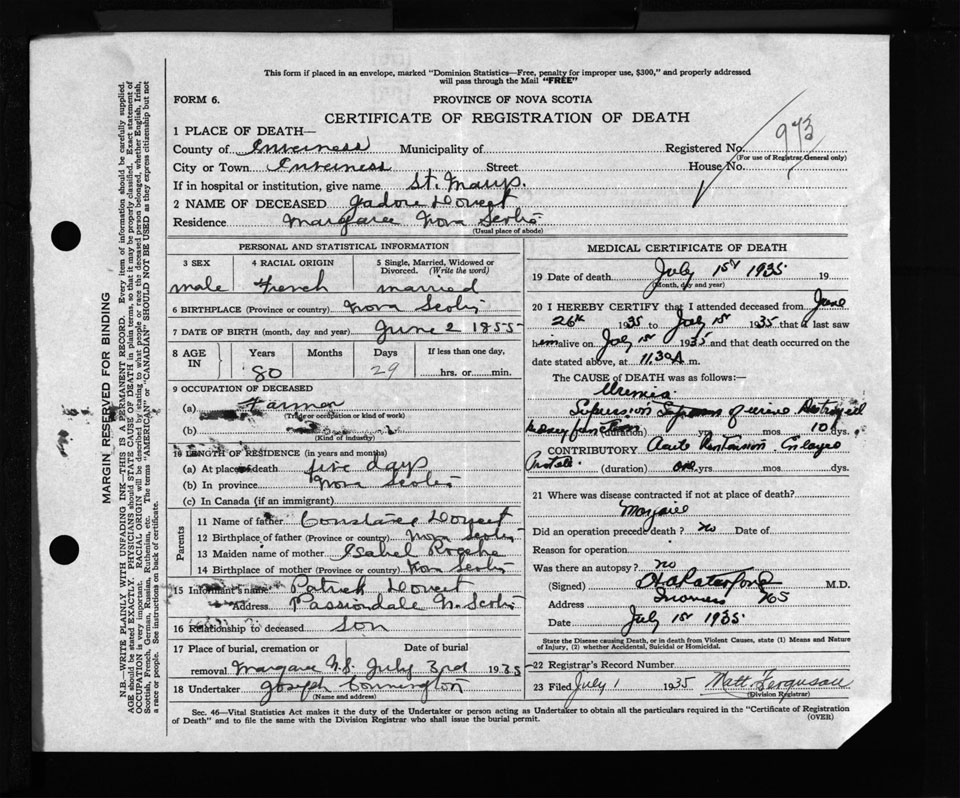 This form if placed in an envelope, marked "Dominion Statistics—Free, penalty for improper use, $300," and properly addressed
will pass through the Mail "FREE"
FORM 6.
PROVINCE OF NOVA SCOTIA
CERTIFICATE OF REGISTRATION OF DEATH
973
1 PLACE OF DEATH—
County of Inverness Municipality of Registered No.
(For use of Registrar General only)
City or Town Inverness Street House No.
If in hospital or institution, give name St. Marys.
2 NAME OF DECEASED Doucet
Residence Margaree Nova Scotia
(Usual place of abode)
PERSONAL AND STATISTICAL INFORMATION
3 SEX 4 RACIAL ORIGIN 5 Single, Married, Widowed or
Divorced. (Write the word)
male French married
6 BIRTHPLACE (Province or country) Nova Scotia
7 DATE OF BIRTH (month, day and year) June 2 1855
8 AGE IN Years Months Days If less than one day,
80 29 hrs. or min.
9 OCCUPATION OF DECEASED
(a) Farmer
(Trade or occupation or kind of work)
(b)
(Kind of industry)
10 LENGTH OF RESIDENCE (in years and months)
(a) At place of death five days
(b) In province Nova Scotia
(c) In Canada (if an immigrant)
Parents
11 Name of father Doucet
12 Birthplace of father (Province or country) Nova Scotia
13 Maiden name of mother Isabel Roche
14 Birthplace of mother (Province or country) Nova Scotia
15 Informant's name Patrick Doucet
Address Passiondale N. Scotia
16 Relationship to deceased Son
17 Place of burial, cremation or Date of burial
removal Margaree N.S. July 3rd 1935
18 Undertaker Joseph
(Name and address)
MEDICAL CERTIFICATE OF DEATH
19 Date of death July 1st 1935 19
(Month, day and year)
20 I HEREBY CERTIFY that I attended deceased from June
26th 1935 to July 1st 1935 that I last saw
him alive on July 1st 1935 and that death occurred on the
date stated above, at 11.30 A. m.
The CAUSE OF DEATH was as follows:—
Uremia
Supression of urine
kidney function (duration) yrs. mos. 10 dys.
CONTRIBUTORY Acute
Prostate. (duration) one yrs mos. dys.
21 Where was disease contracted if not at place of death?
Margaree
Did an operation precede death? no Date of
Reason for operation
Was there an autopsy? no
(Signed) M.D.
Address Inverness NS
Date July 1st 1935
State the Disease causing Death, or in death from Violent Causes, state (1) Means and Nature
of Injury, (2) whether Accidental, Suicidal or Homicidal.
22 Registrar's Record Number
23 Filed July 1 1935 Matt Ferguson
(Division Registrar)
Sec. 46—Vital Statistics Act makes it the duty of the Undertaker or person acting as Undertaker to obtain all the particulars required in the "Certificate of Registration
of Death" and to file the same with the Division Registrar who shall issue the burial permit. (OVER)
MARGIN RESERVED FOR BINDING
N.B.—WRITE PLAINLY WITH UNFADING INK—THIS IS A PERMANENT RECORD. Every item of information should be carefully supplied.
AGE should be stated EXACTLY. PHYSICIANS should STATE CAUSE OF DEATH in plain terms, so that it may be properly classified. Exact statement of
OCCUPATION is very important. RACIAL ORIGIN will be described by stating to what people or race the deceased person belonged, whether English, Irish,
Scottish, French, German, Russian, Ruthenian, etc. The terms "AMERICAN" or "CANADIAN" SHOULD NOT BE USED as they express citizenship but not
a race or people. See instructions on back of certificate.